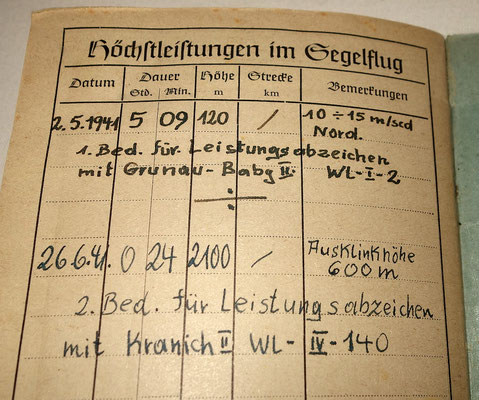 Höchstleistungen im Segelflug
Datum Dauer Höhe Strecke Bemerkungen
Std. Min. m km
2.5.1941 5 09 120 / 10 ÷ 15 m/scd
Nord.
1. Bed. für Leistungsabzeichen
mit Grunau-Babg II. WL-I-2
26.6.41. 0 24 2100 / Ausklinkhöhe
600 m
2. Bed. für Leistungsabzeichen
mit Kranich II WL-IV-140